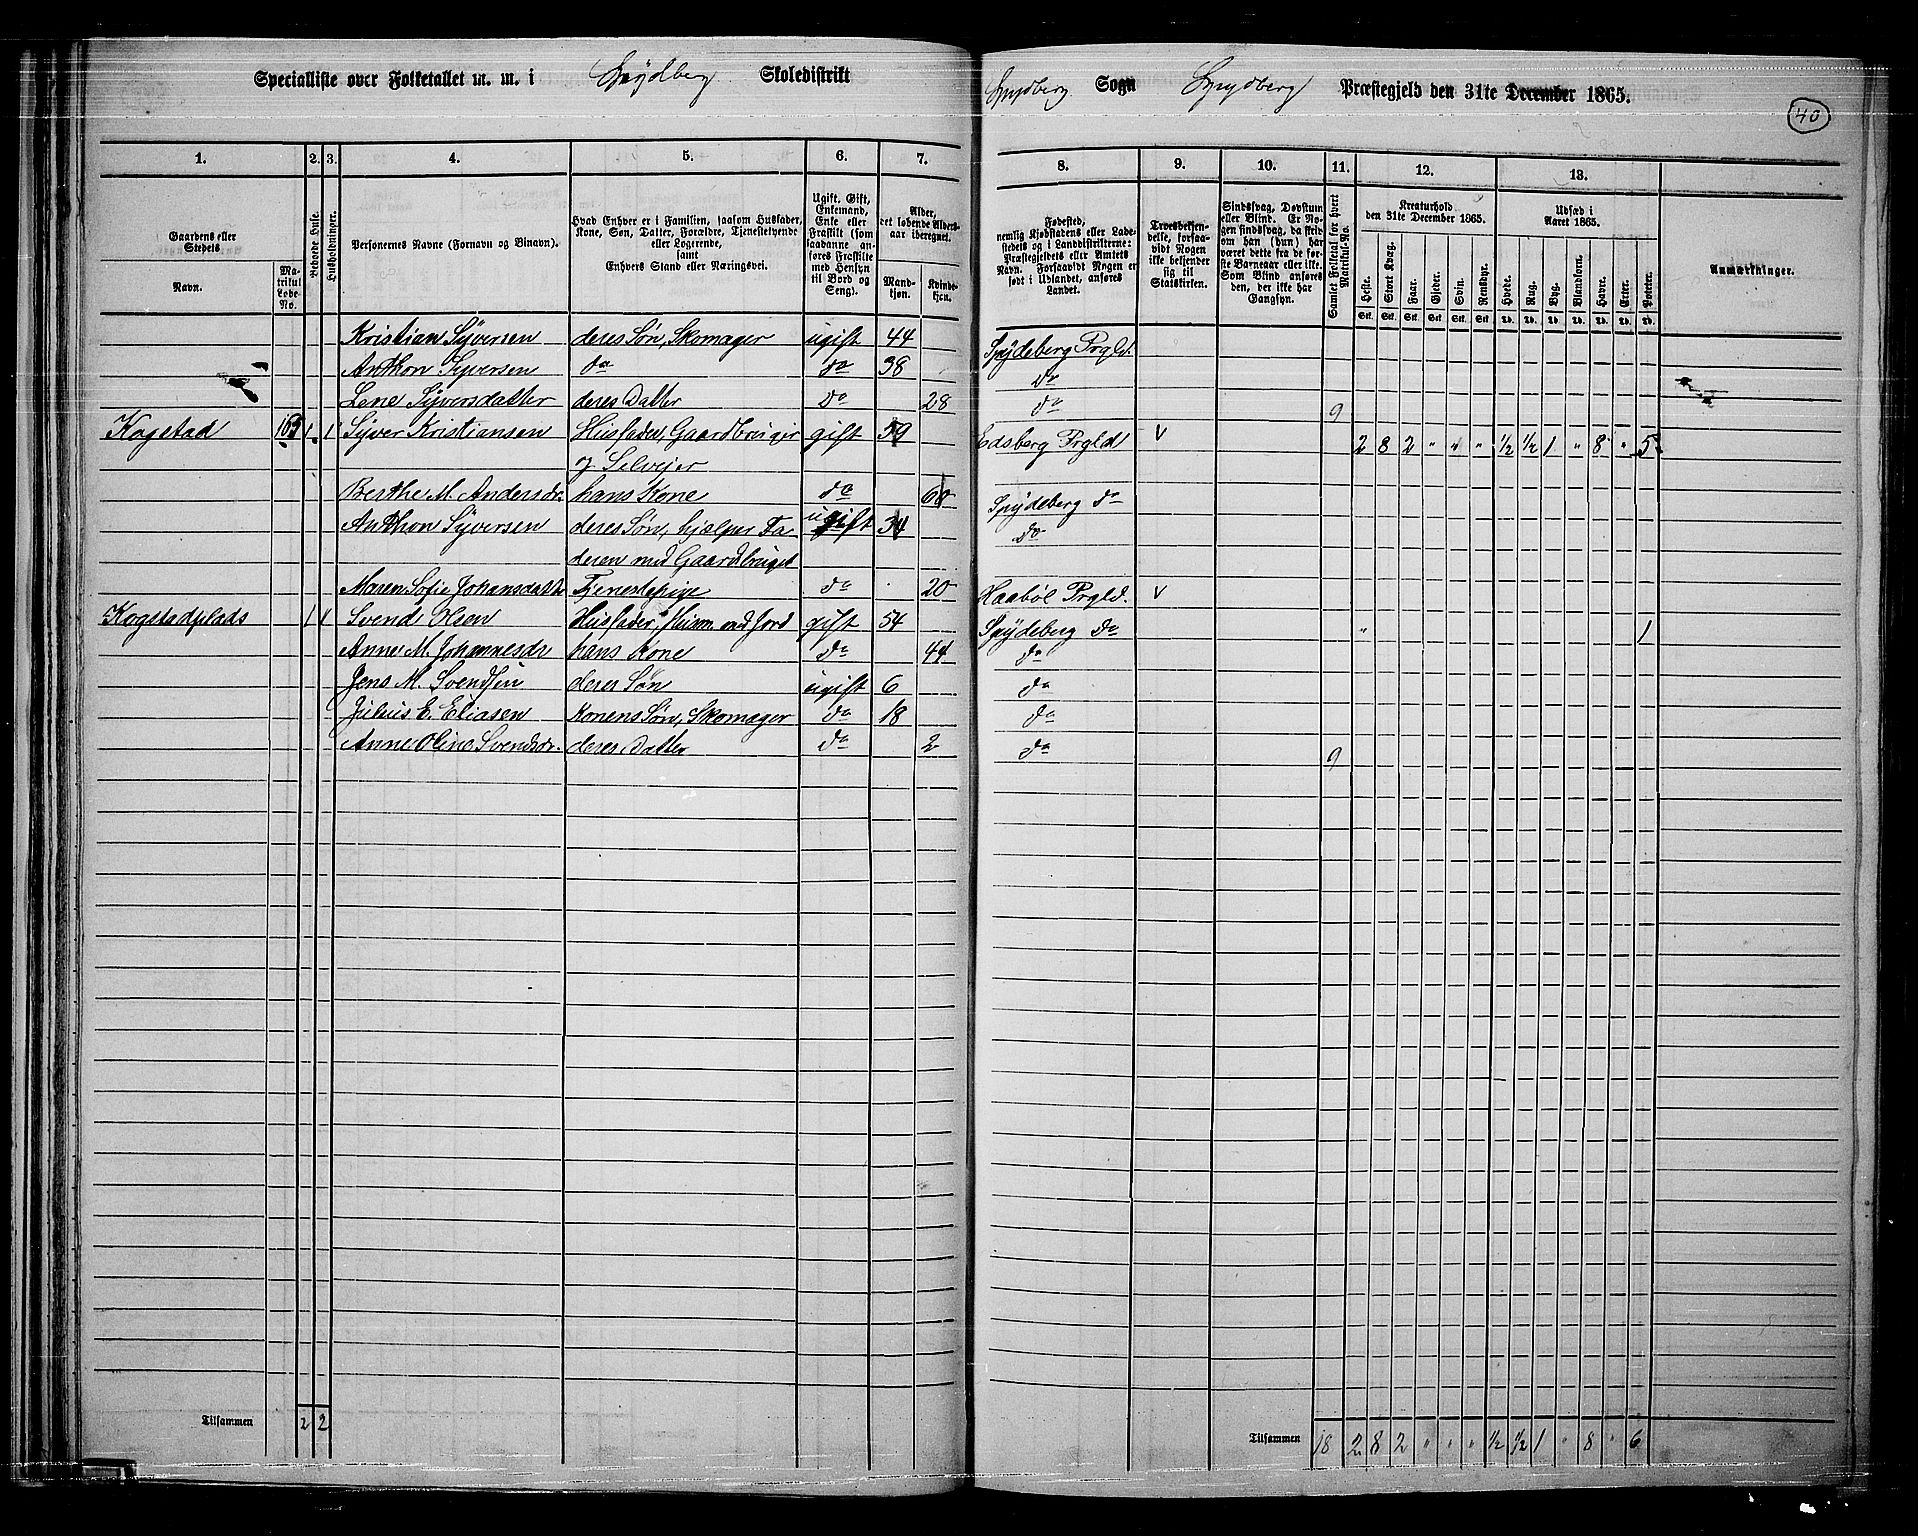 Specialliste over Folketallet m. m. i Spydberg Skoledistrikt
Spydberg Sogn Spydberg Præstegjeld den 31te December 1865.
40
1. 2. 3. 4. 5. 6. 7.
8. 9. 10. 11. 12. 13.
Gaardens eller Stedets
Navn.
Matrikul Løbe-No.
Beboede Huse.
Husholdninger.
Personernes Navne (Fornavn og Binavn).
Hvad Enhver er i Familien, saasom Husfader, Kone, Søn, Datter, Forældre, Tjenestetyende eller Logerende, samt Enhvers Stand eller Næringsvei.
Ugift, Gift, Enkemand, Enke eller Fraskilt (som saadanne anføres Fraskilte med Hensyn til Bord og Seng).
Alder, det løbende Aldersaar iberegnet.
Mandkjøn.
Kvindekjøn.
Fødested, nemlig Kjøbstadens eller Ladestedets og i Landdistrikterne: Præstegjeldets eller Amtets Navn. Forsaavidt Nogen er født i Udlandet, anføres Landet.
Troesbekjendelse, forsaavidt Nogen ikke bekjender sig til Statskirken.
Sindssvag, Døvstum eller Blind. Er Nogen sindssvag, da skrives om han (hun) har været dette fra de første Barneaar eller ikke. Som Blind anføres den, der ikke har Gangsyn.
Samlet Folketal for hvert Matrikul-No.
Kreaturhold den 31te December 1865.
Heste. Stort Kvæg. Faar. Gjeder. Svin. Rensdyr.
Stk. Stk. Stk. Stk. Stk. Stk.
Udsæd i Aaret 1865.
Hvede. Rug. Byg. Blandkorn. Havre. Erter. Poteter.
Td. Td. Td. Td. Td. Td. Td.
Anmærkninger.
Kristian Syversen deres Søn, Skomager ugift 44 Spydeberg Prgld.
Anthon Syversen do do 38 do
Lene Syversdatter deres Datter do 28 do 9
Kogstad 169 1 1 Syver Kristiansen Husfader, Gaardbruger gift 59 Edsberg Prgld V 2 8 2 " " " ½ ½ 1 " 8 " 5
og Selvejer
Berthe M. Andersdr. hans Kone do 60 Spydeberg do
Anthon Syversen deres Søn, hjælper Fa- ugift 34 do
deren med Gaardsbruget
Maren Sofie Johansdatter Tjenestepige do 20 Haabøl Prgld. V
Kogstadplads 1 1 Svend Olsen Husfader, Husm. med Jord gift 54 Spydeberg do " 1
Anne M. Johannesdr hans Kone do 44 do
Jens M. Svendsen deres Søn ugift 6 do
Julius E. Eliasen Konens Søn, Skomager do 18 do
Anne Oline Svendsdr. deres Datter do 2 do 9
Tilsammen 2 2
Tilsammen 18 2 8 2 " " " ½ ½ 1 " 8 " 6